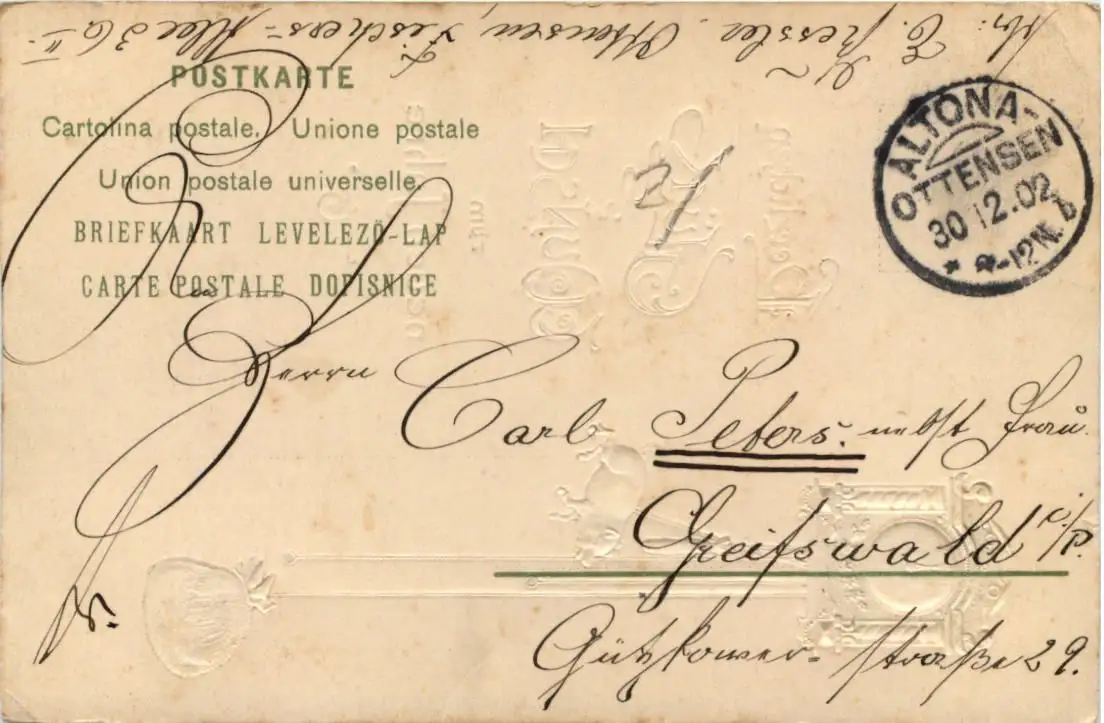 Abs: C. Kessler. Ottensen, Fischers-Allee 36 II.
POSTKARTE
Cartolina postale. Unione postale
Union postale universelle.
BRIEFKAART LEVELEZÖ-LAP
CARTE POSTALE DOPISNICE
ALTONA-
OTTENSEN
30 12.02
-12N. b
21
Herrn
Carl Peters. nebst Frau.
Greifswald i/P.
Gützkower-straße 29.